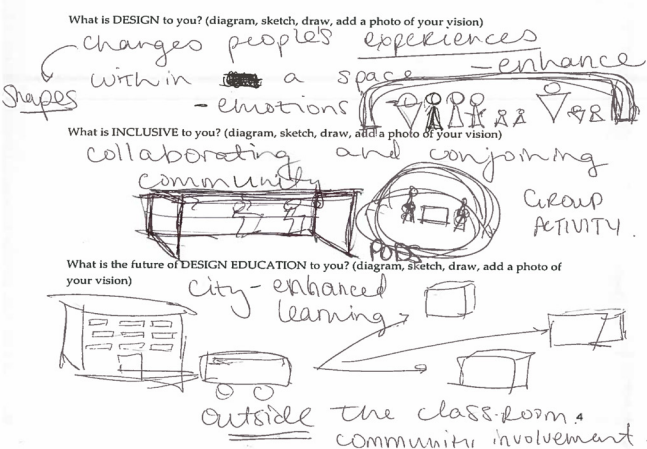 What is DESIGN to you? (diagram, sketch, draw, add a photo of your vision)
changes people's experiences
shapes within a space - enhance
- emotions
What is INCLUSIVE to you? (diagram, sketch, draw, add a photo of your vision)
collaborating and conjoining
community
GROUP
ACTIVITY.
PODS
What is the future of DESIGN EDUCATION to you? (diagram, sketch, draw, add a photo of
your vision)
city-enhanced
learning
outside the class.room.
community involvement